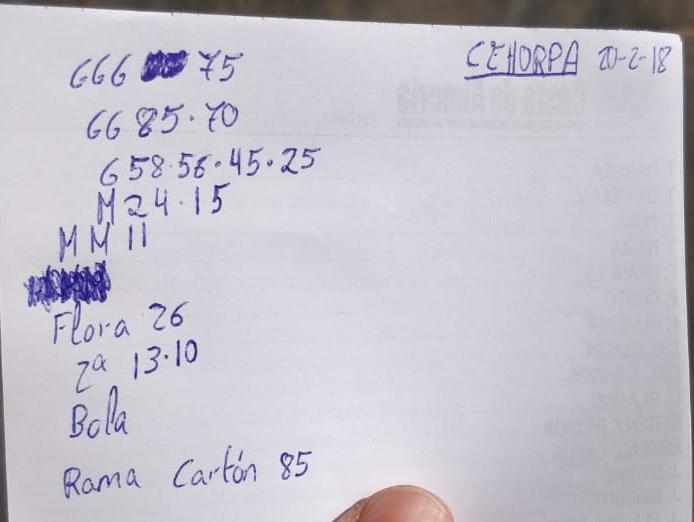 CEHORPA 20-2-18
GGG 75
GG 85·70
G 58·56·45·25
M 24·15
MM 11
Flora 26
2ª 13·10
Bola
Rama Cartón 85